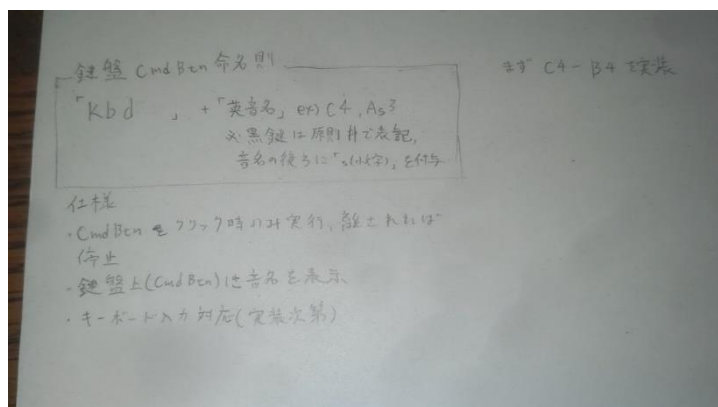 鍵盤 CmdBtn 命名則
まず C4-B4 を実装
「Kbd 」 + 「英音名」 ex) C4, As3
※黒鍵は原則#で表記,
音名の後ろに「s(小文字)」を付与
仕様
・CmdBtn をクリック時のみ実行, 離されれば
停止
・鍵盤上(CmdBtn)に音名を表示
・キーボード入力対応(実装次第)